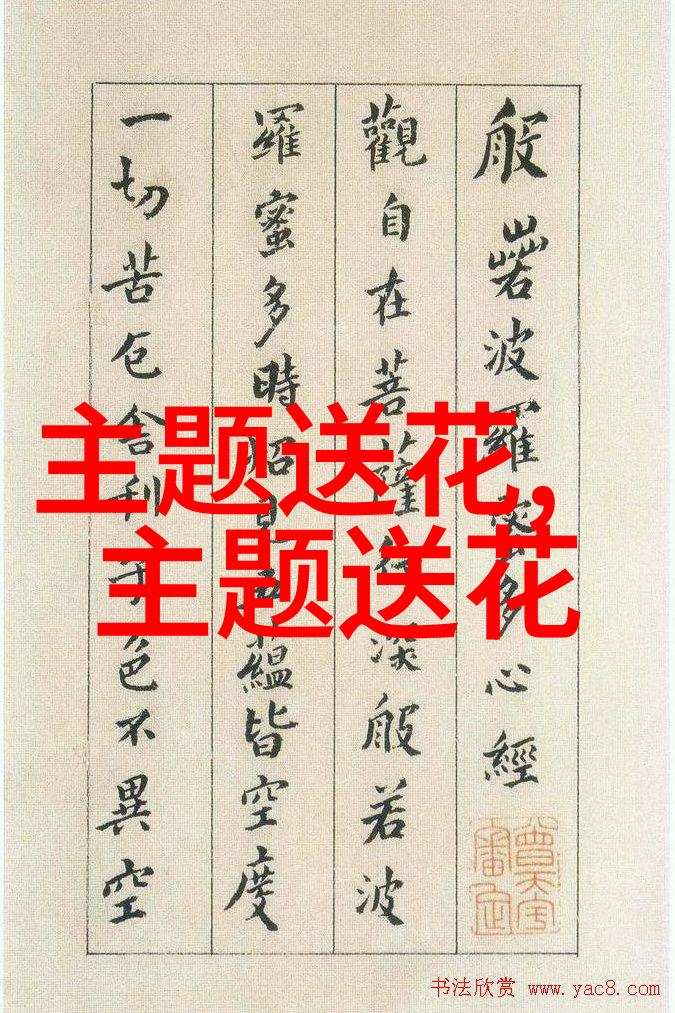 般若波羅蜜多心經
觀自在菩薩行深般若波
羅蜜多時照見五蘊皆空度
一切苦厄舍利子色不異空
主题送花,
主题送花
书法欣赏 www.yac8.com